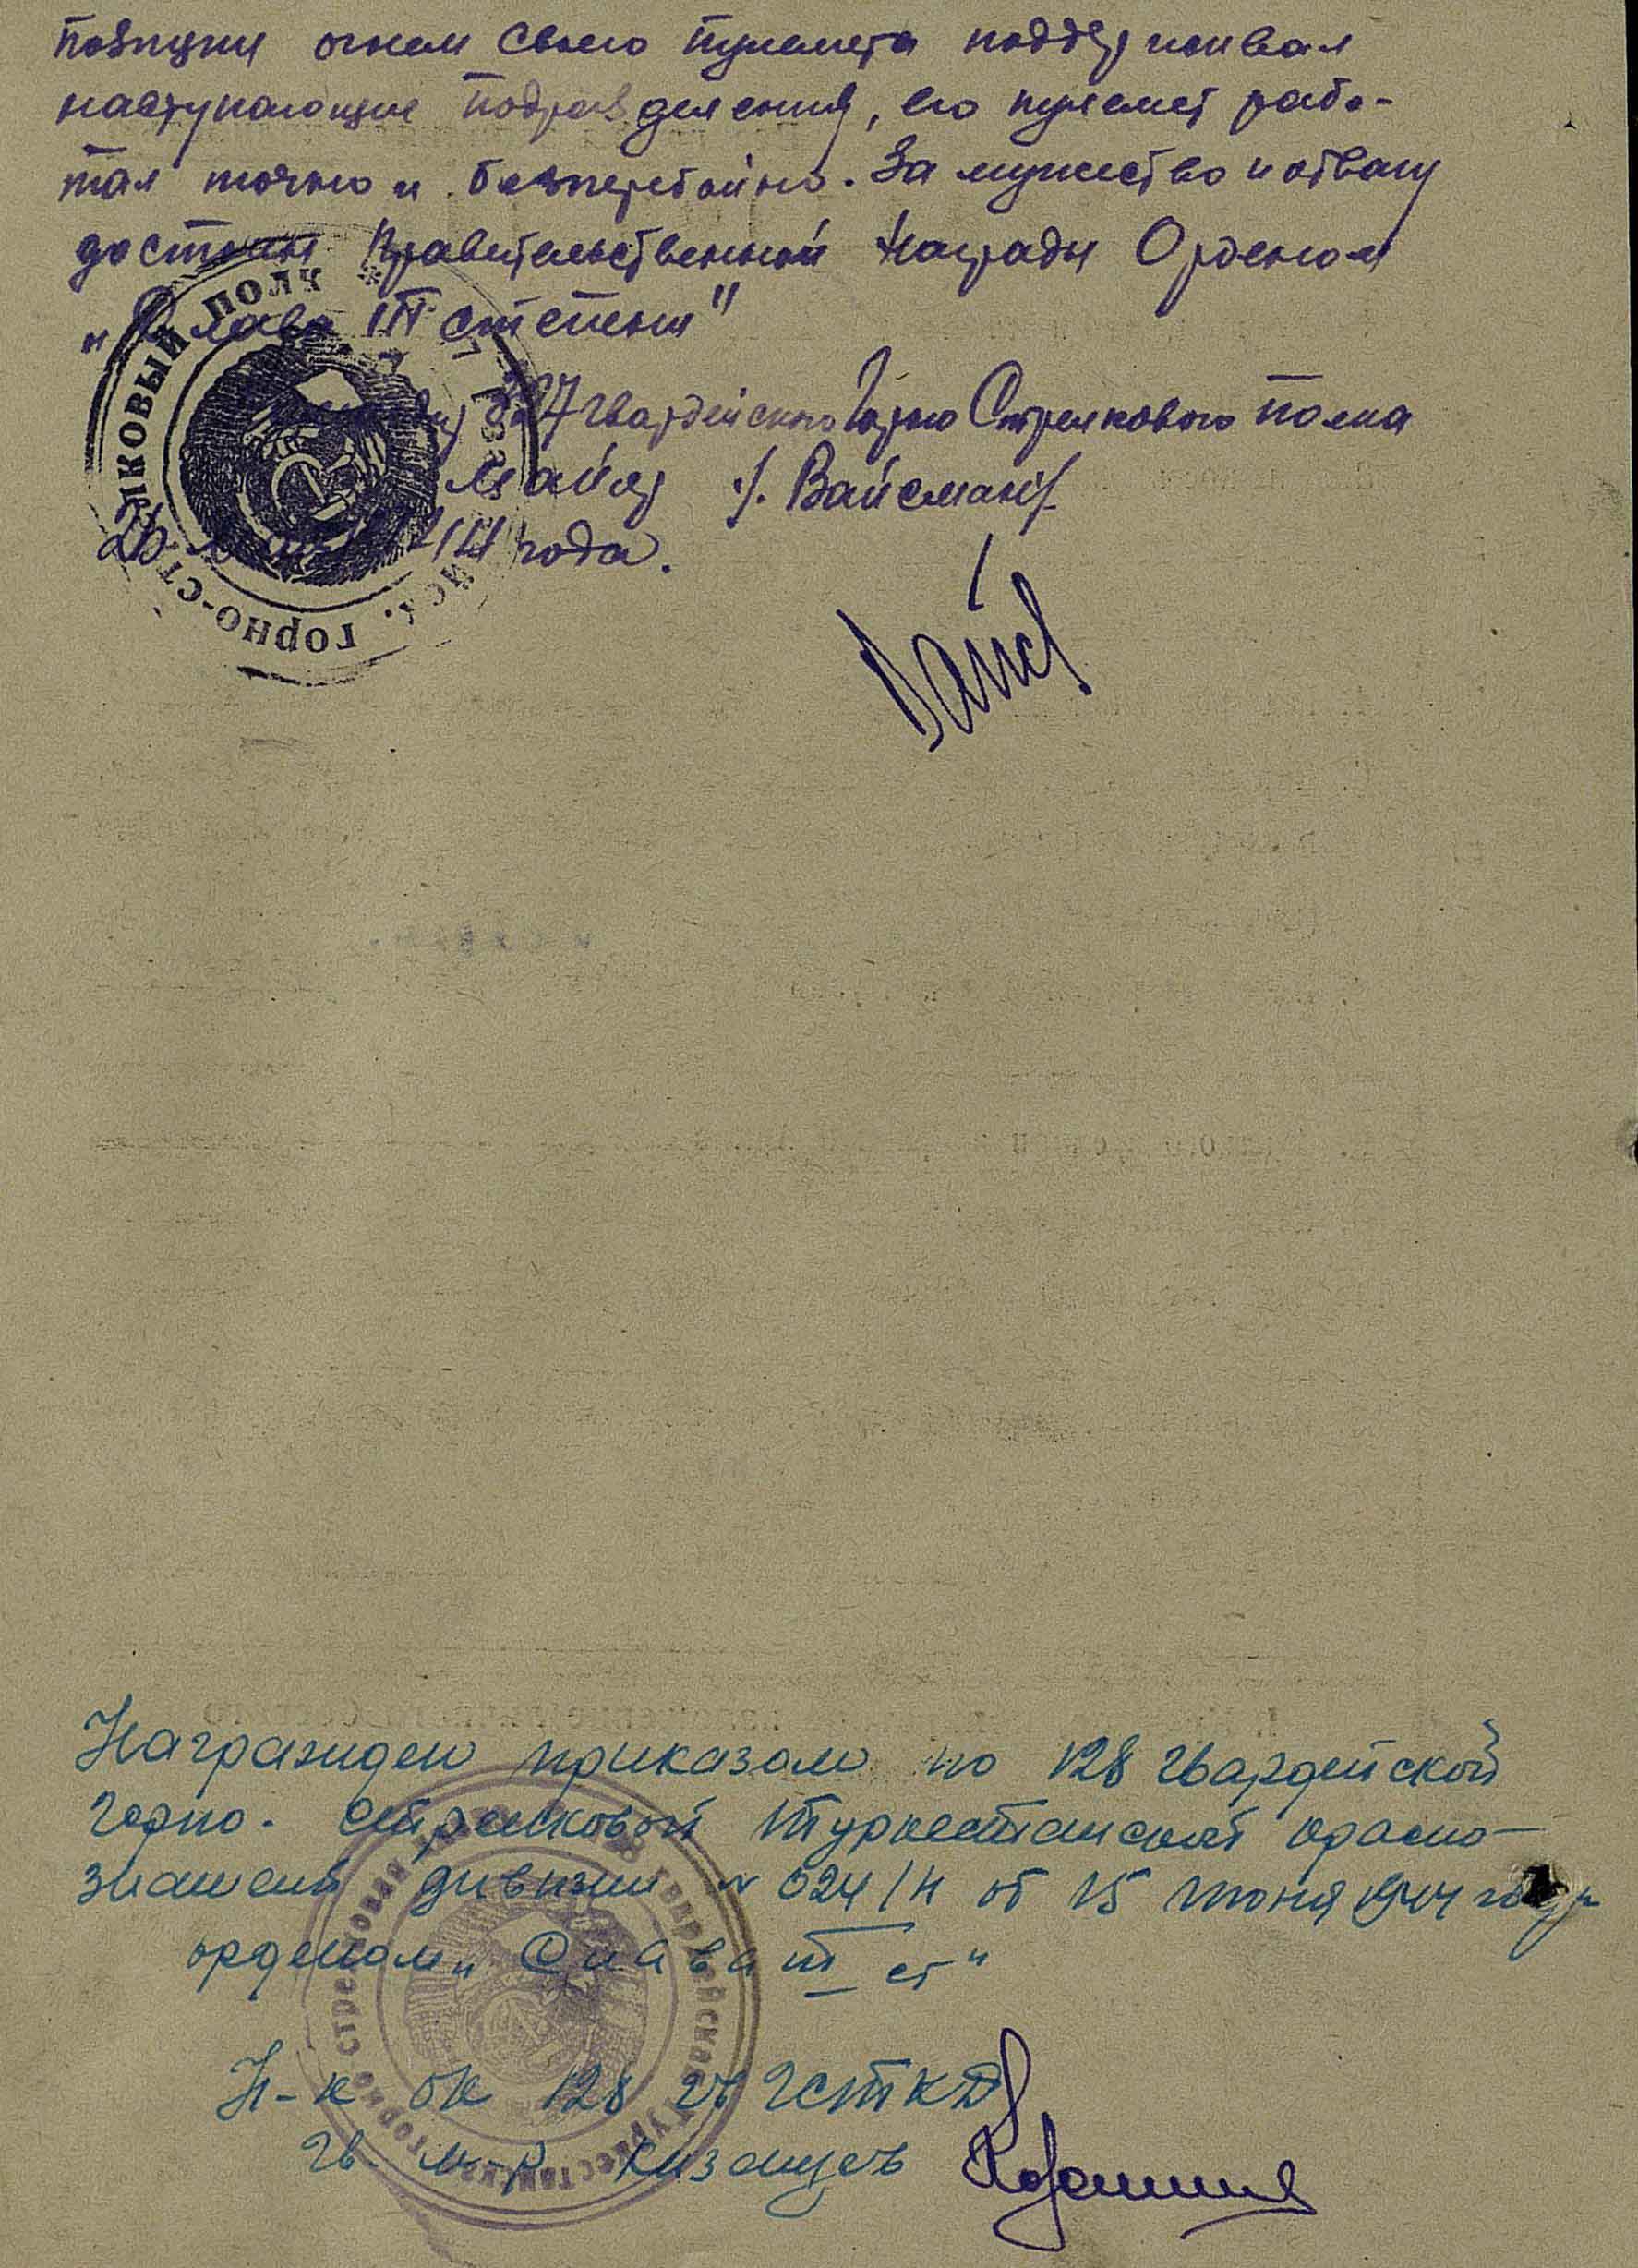 позиции огнем своего пулемета поддерживал
наступающие подразделения, его пулемет рабо-
тал точно и безперебойно. За мужество и отвагу
достоин Правительственной Награды Орденом
"Слава III степени"
327 Гвардейского Горно Стрелкового полка
Майор /. Вайсман/.
26 44 года.
Вайс
ГОРНО-СТРЕЛКОВЫЙ ПОЛК
Награжден приказом по 128 гвардейской
Горно-стрелковой Туркестанской красно-
знаменной дивизии № 024/н от 15 июня 1944 года
орденом "Слава III ст"
Н-к ОК 128 гв ГСТКД
Гв. м-р Казанцев